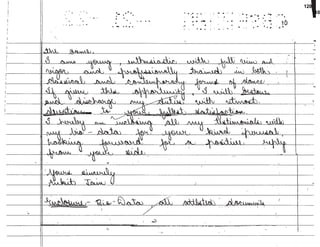 128
10
the same.
I am young, enthusiastic with full vim and
vigor and professionally trained in both
classical and contemporary forms of dance.
If given this opportunity, I will
and discharge my duties with utmost
devotion to your fullest satisfaction.
I hereby am enclosing all my testimonials with
my bio-data for your kind perusal,
looking forward for a positive reply
from your side.
Yours sincerely
Jain
Enclosure - Bio-Data, all attested documents